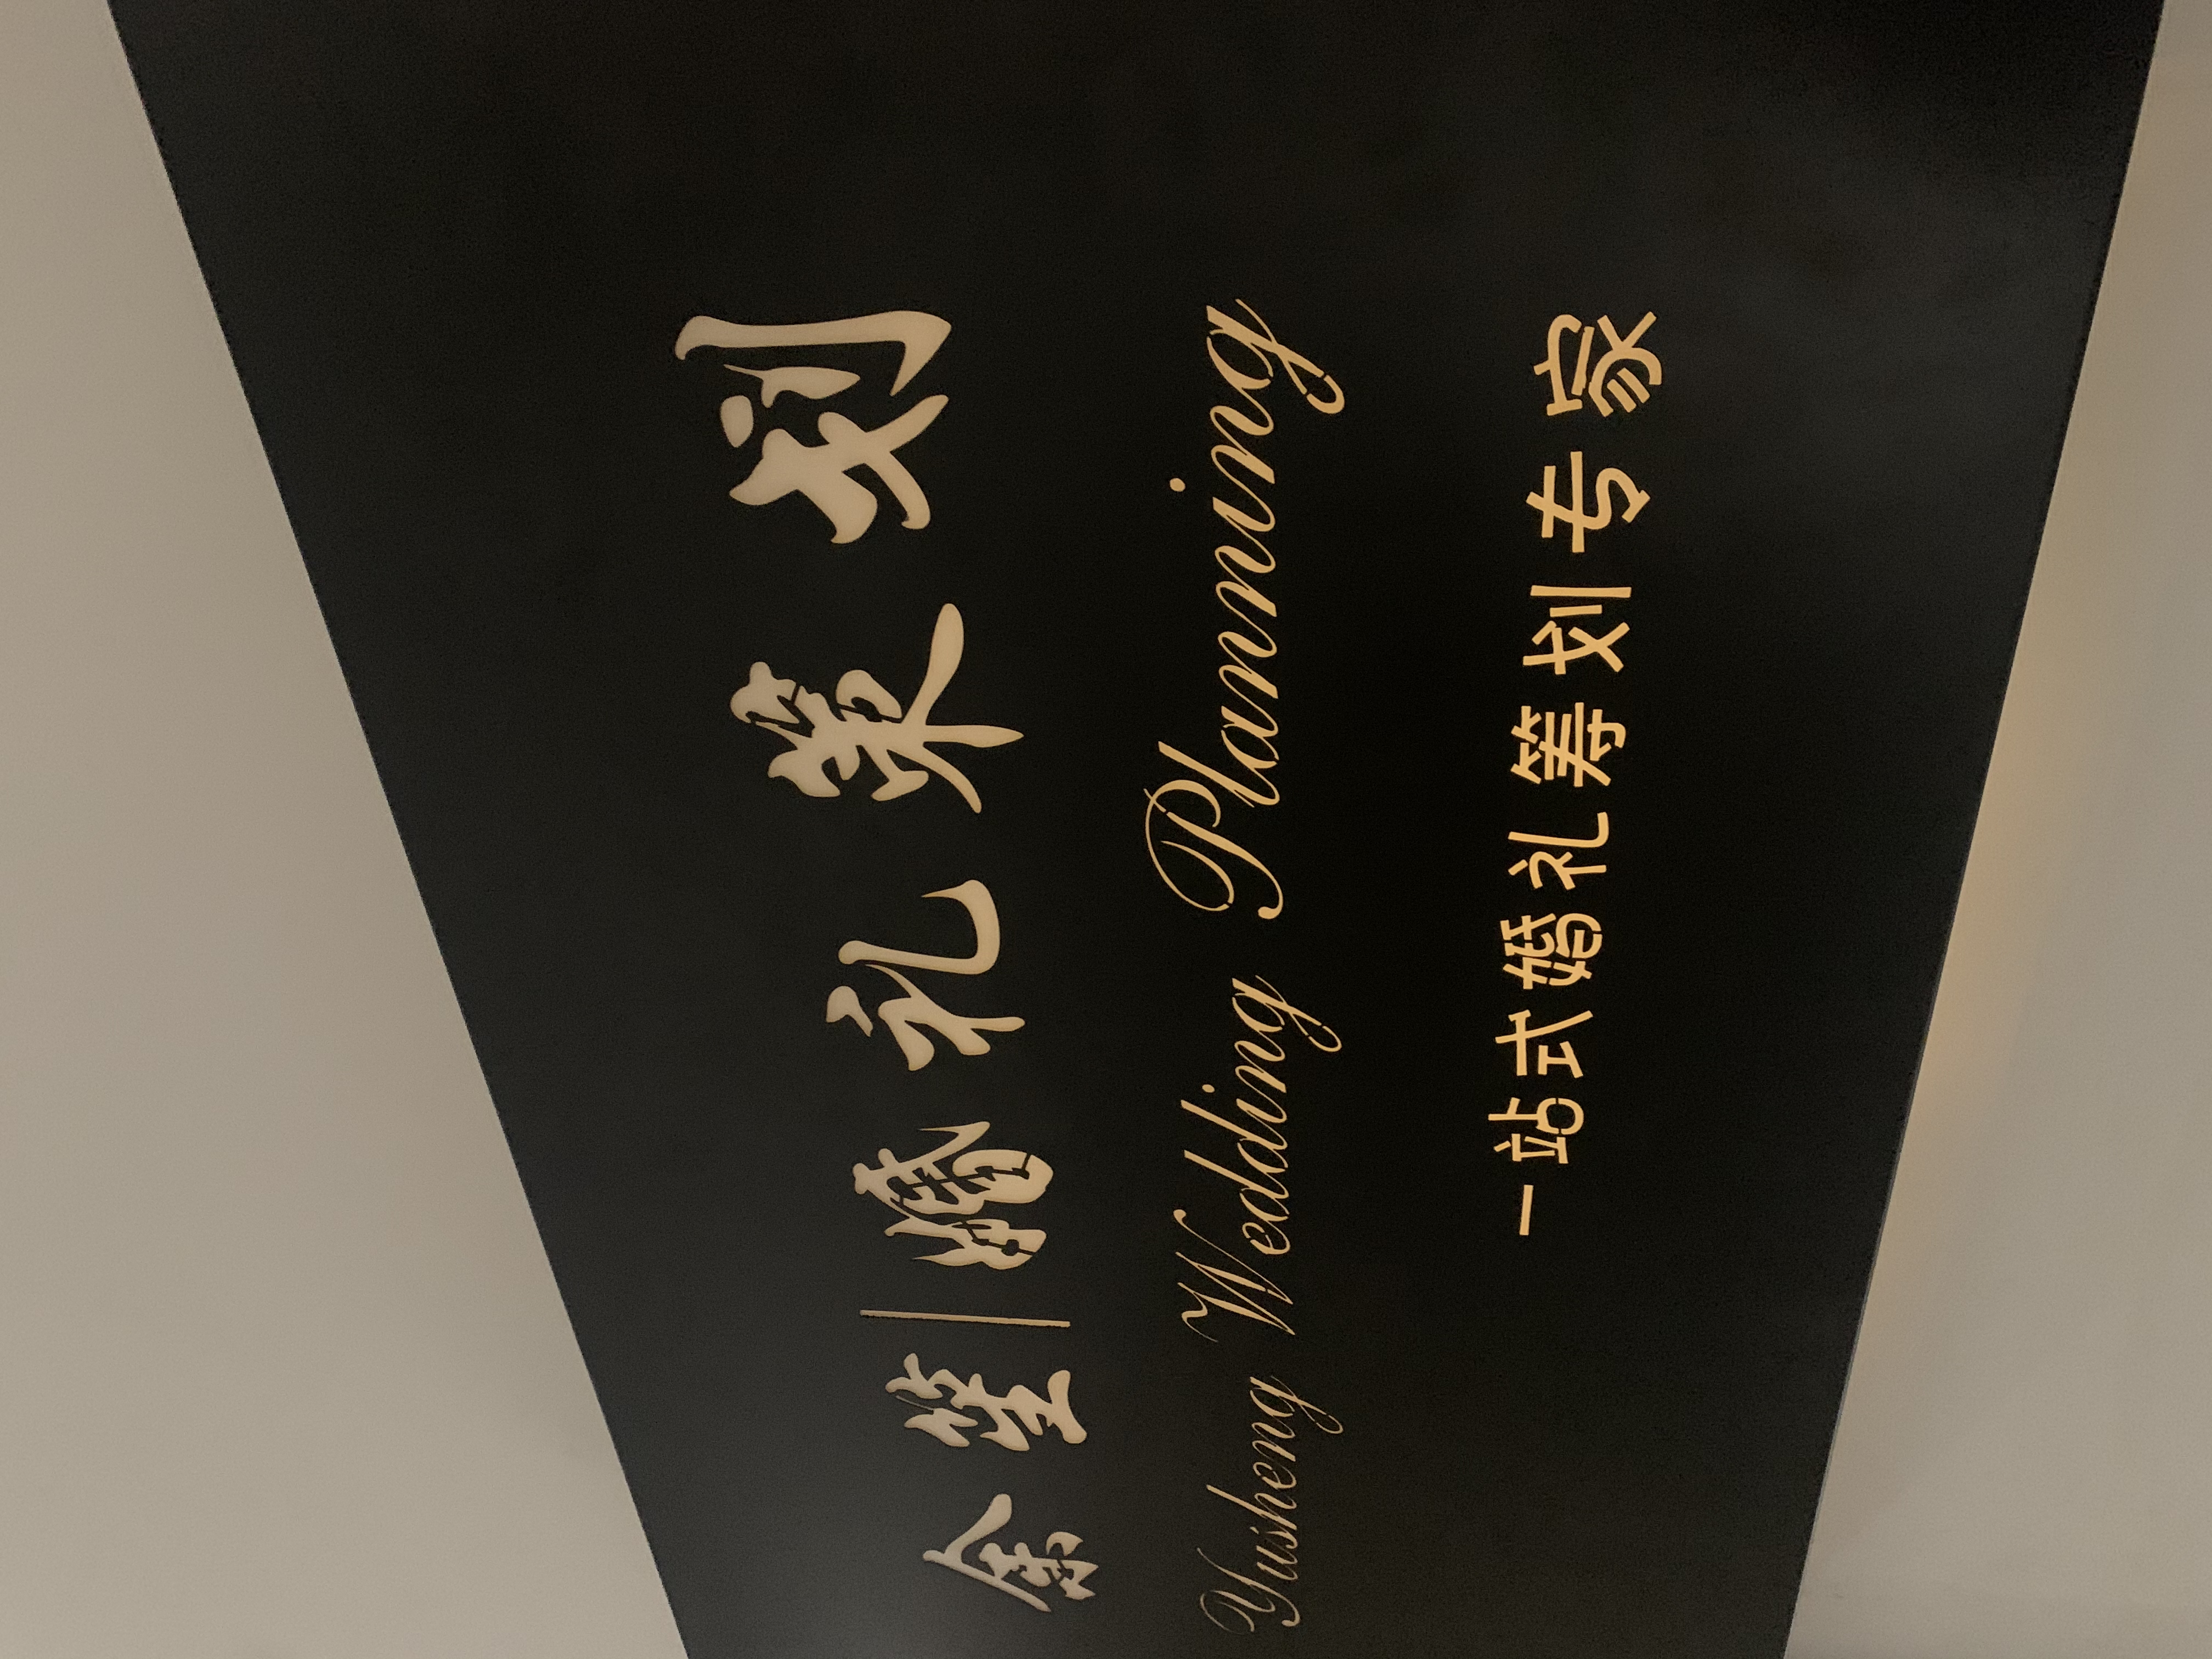 余笙|婚礼策划
Yusheng Wedding Planning
一站式婚礼筹划专家